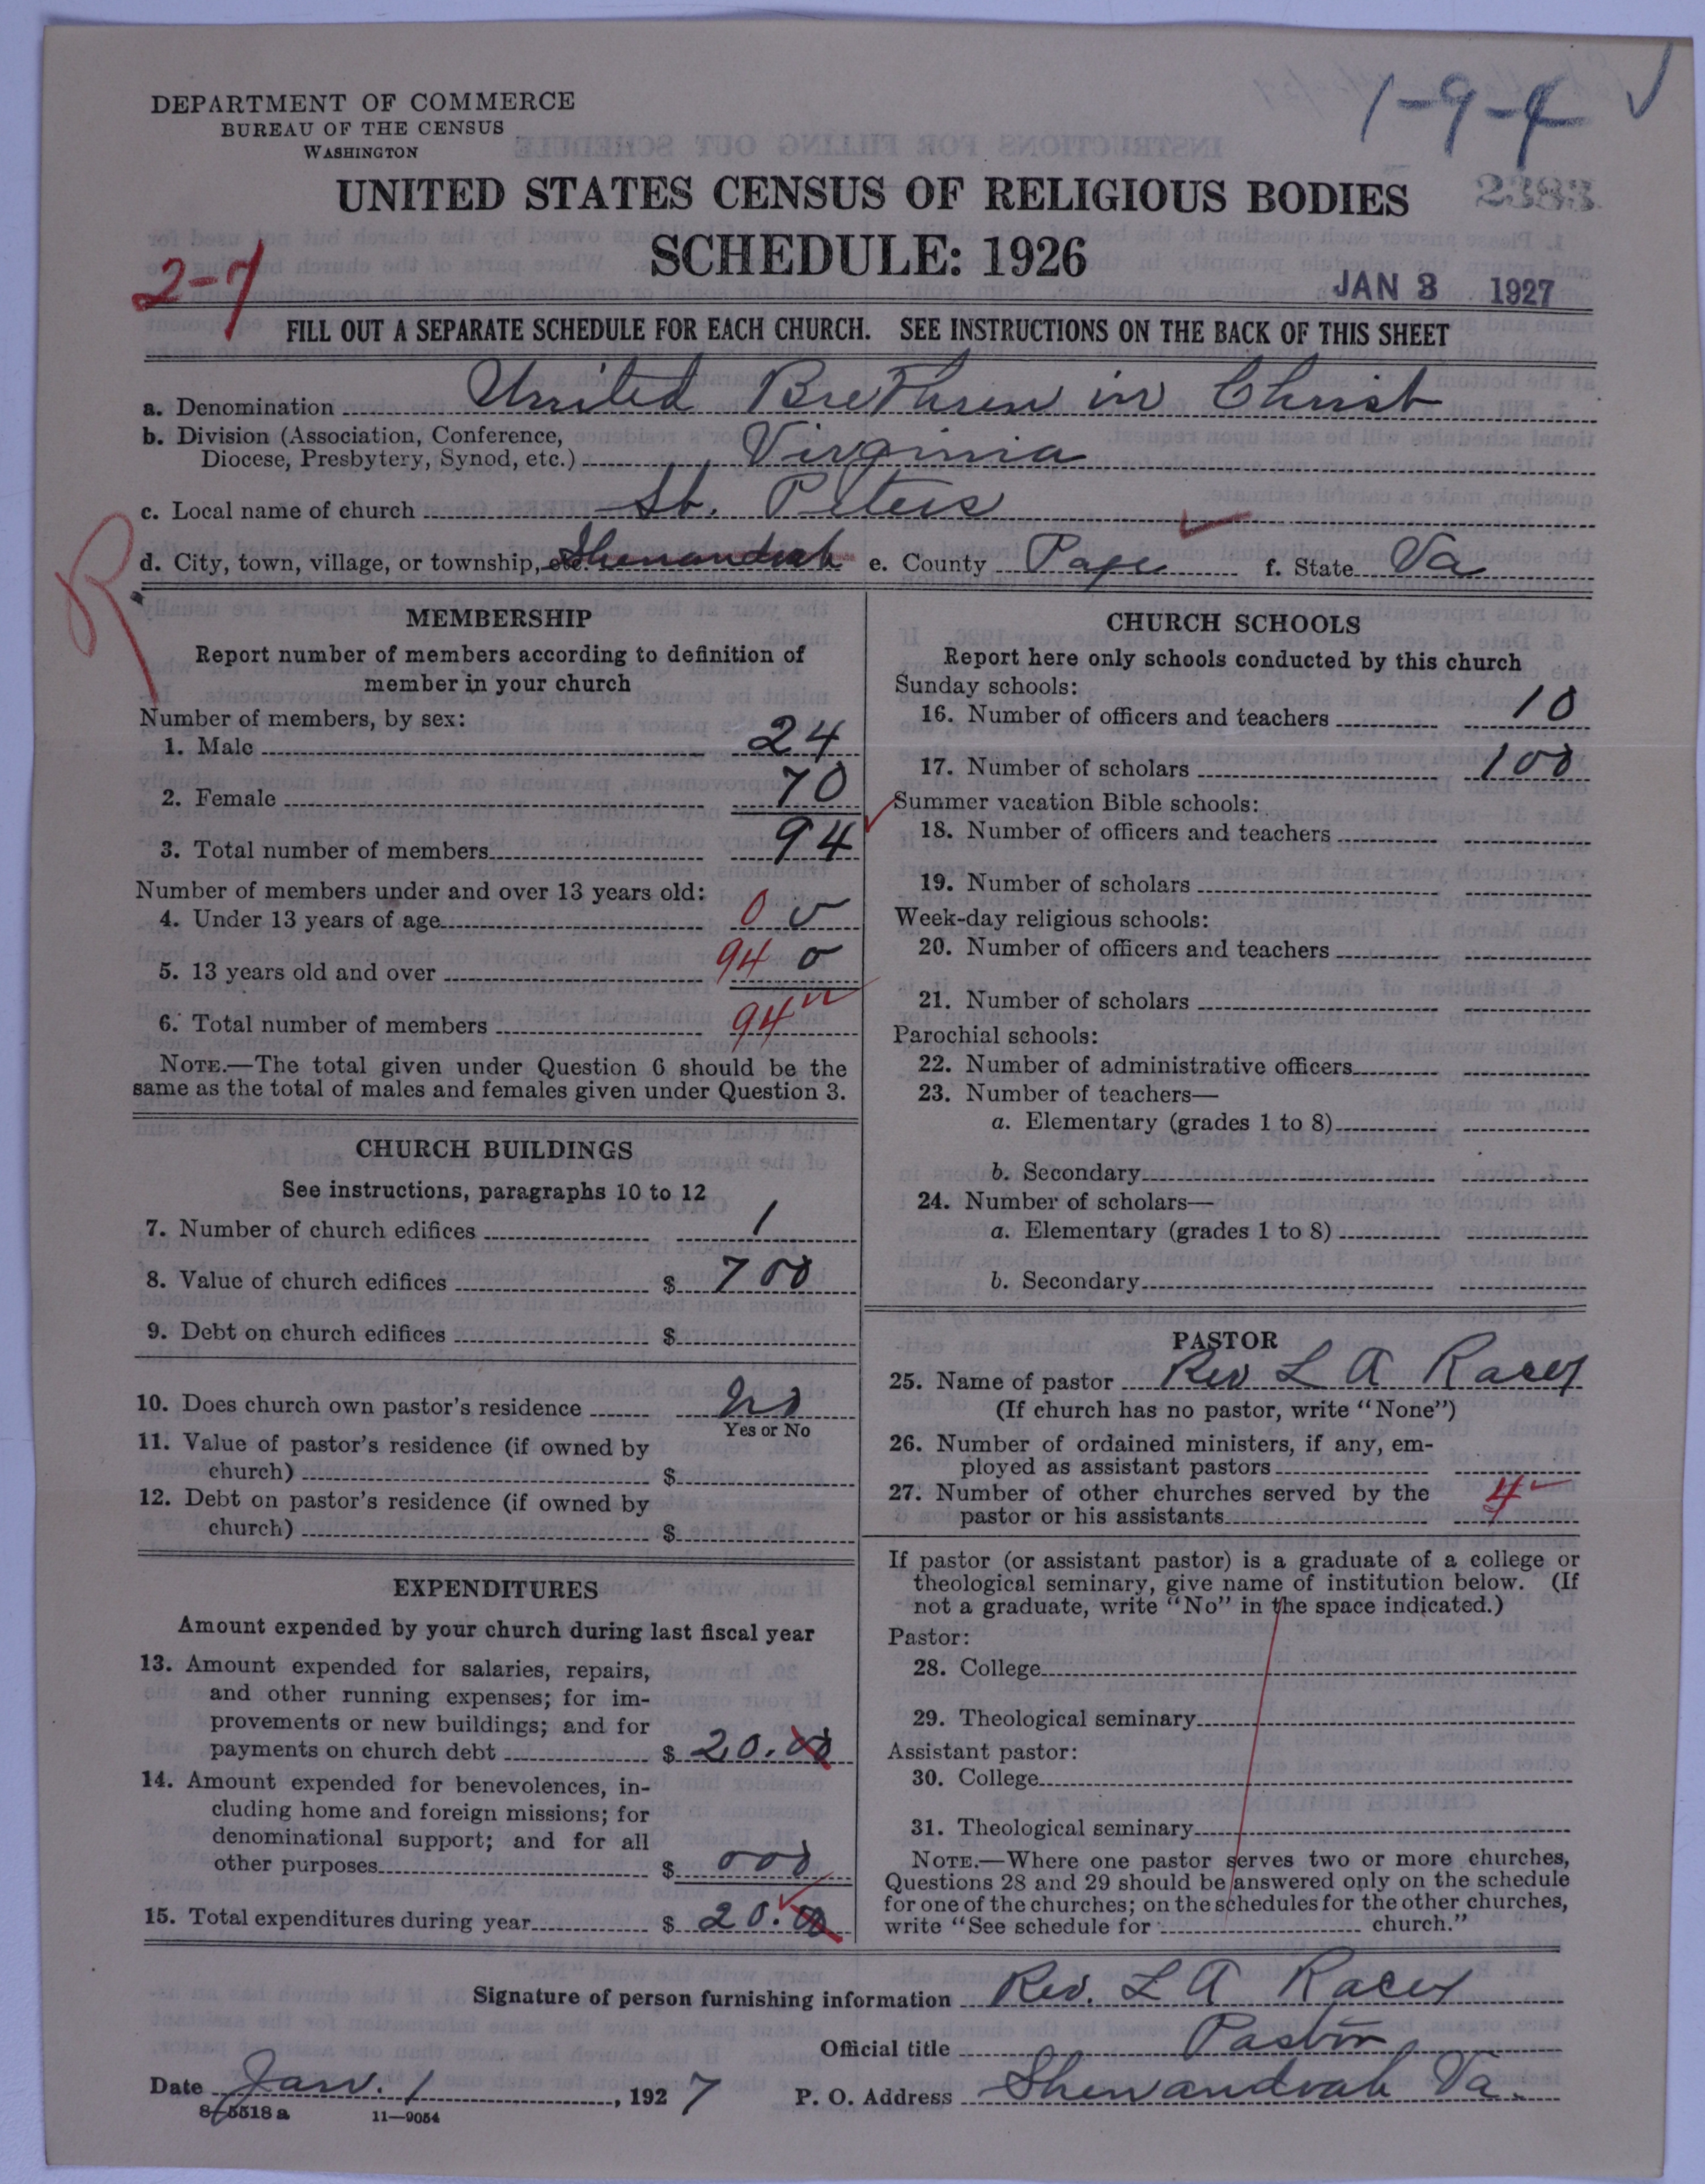 DEPARTMENT OF COMMERCE
BUREAU OF THE CENSUS
WASHINGTON
1-9-4
2383
UNITED STATES CENSUS OF RELIGIOUS BODIES
SCHEDULE: 1926
2-7
JAN 3 1927
FILL OUT A SEPARATE SCHEDULE FOR EACH CHURCH. SEE INSTRUCTIONS ON THE BACK OF THIS SHEET
a. Denomination United Brethren in Christ
b. Division (Association, Conference,
Diocese, Presbytery, Synod, etc.) Virginia
c. Local name of church St. Peters
d. City, town, village, or township, etc. Shenandoah e. County Page f. State Va
R
MEMBERSHIP
Report number of members according to definition of
member in your church
Number of members, by sex:
1. Male 24
2. Female 70
3. Total number of members 94
Number of members under and over 13 years old:
4. Under 13 years of age 0
5. 13 years old and over 94 0
6. Total number of members 94
NOTE.—The total given under Question 6 should be the
same as the total of males and females given under Question 3.
CHURCH BUILDINGS
See instructions, paragraphs 10 to 12
7. Number of church edifices 1
8. Value of church edifices $ 700
9. Debt on church edifices $
10. Does church own pastor's residence no
Yes or No
11. Value of pastor's residence (if owned by
church) $
12. Debt on pastor's residence (if owned by
church) $
EXPENDITURES
Amount expended by your church during last fiscal year
13. Amount expended for salaries, repairs,
and other running expenses; for im-
provements or new buildings; and for
payments on church debt $ 20.00
14. Amount expended for benevolences, in-
cluding home and foreign missions; for
denominational support; and for all
other purposes $ 000
15. Total expenditures during year $ 20.00
CHURCH SCHOOLS
Report here only schools conducted by this church
Sunday schools:
16. Number of officers and teachers 10
17. Number of scholars 100
Summer vacation Bible schools:
18. Number of officers and teachers
19. Number of scholars
Week-day religious schools:
20. Number of officers and teachers
21. Number of scholars
Parochial schools:
22. Number of administrative officers
23. Number of teachers—
a. Elementary (grades 1 to 8)
b. Secondary
24. Number of scholars—
a. Elementary (grades 1 to 8)
b. Secondary
PASTOR
25. Name of pastor Rev L A Racey
(If church has no pastor, write "None")
26. Number of ordained ministers, if any, em-
ployed as assistant pastors
27. Number of other churches served by the
pastor or his assistants 4
If pastor (or assistant pastor) is a graduate of a college or
theological seminary, give name of institution below. (If
not a graduate, write "No" in the space indicated.)
Pastor:
28. College
29. Theological seminary
Assistant pastor:
30. College
31. Theological seminary
NOTE.—Where one pastor serves two or more churches,
Questions 28 and 29 should be answered only on the schedule
for one of the churches; on the schedules for the other churches,
write "See schedule for church."
Signature of person furnishing information Rev. L A Racey
Official title Pastor
Date Jan. 1, 1927 P. O. Address Shenandoah Va.
8-5518 a 11—9054